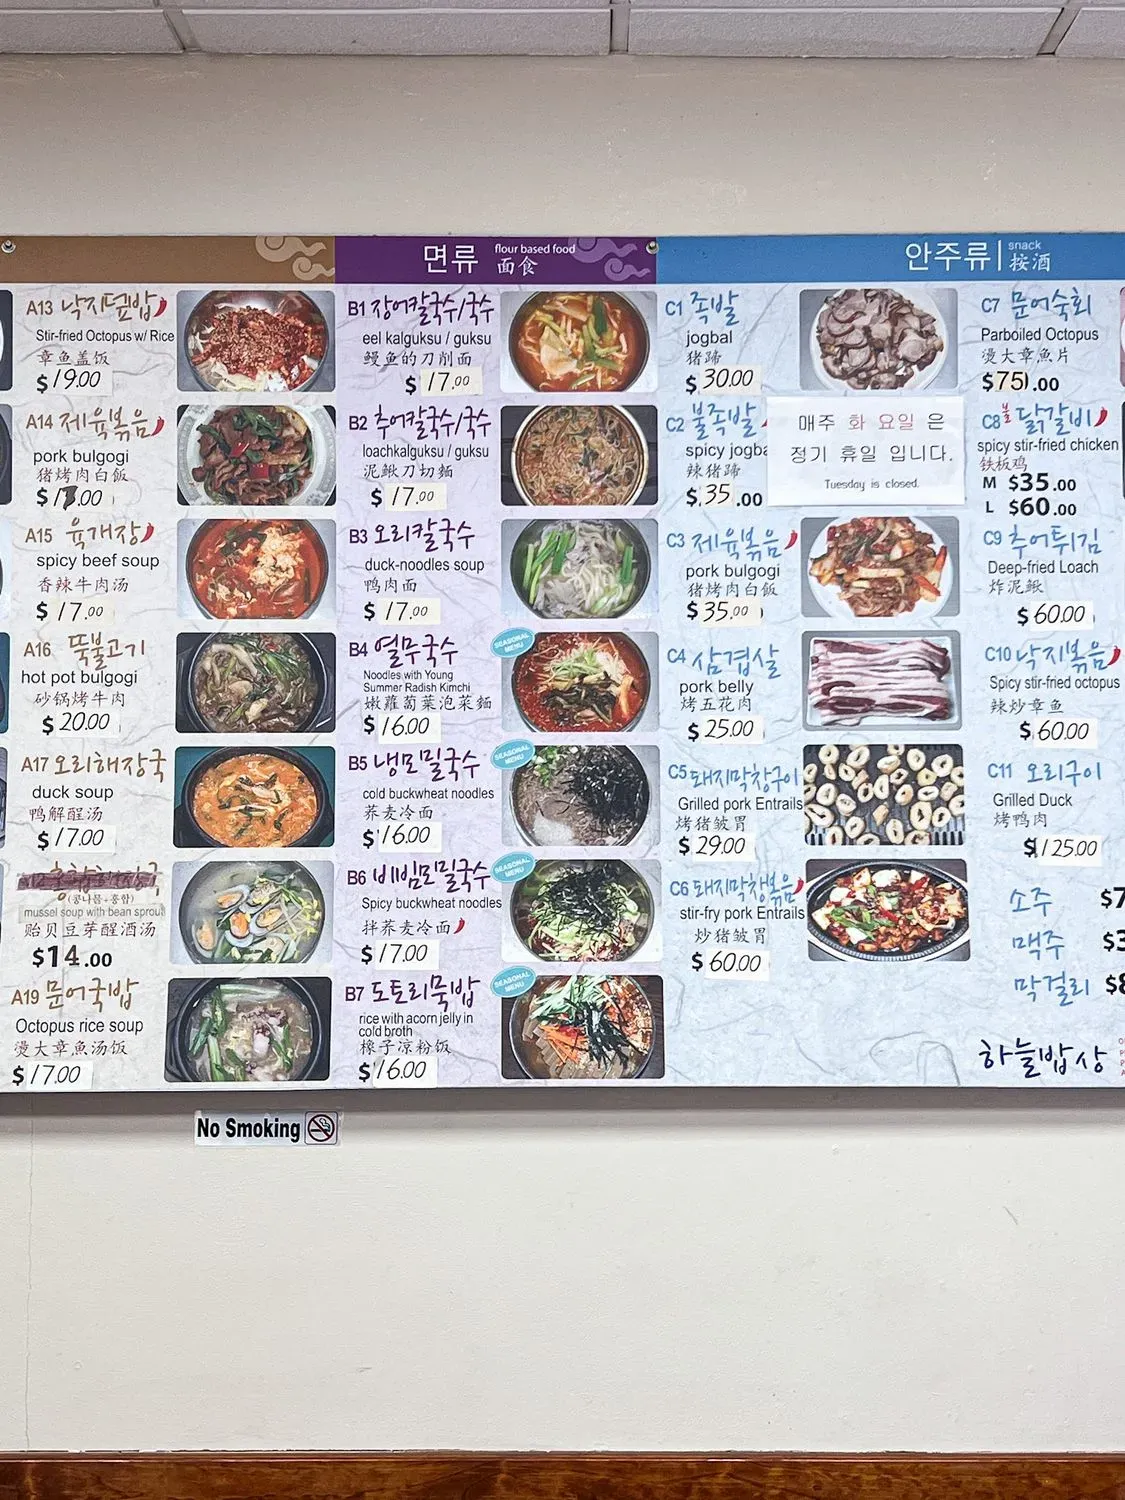 A13 낙지덮밥
Stir-fried Octopus w/ Rice
章鱼盖饭
$19.00
A14 제육볶음
pork bulgogi
猪烤肉白飯
$17.00
A15 육개장
spicy beef soup
香辣牛肉汤
$17.00
A16 뚝불고기
hot pot bulgogi
砂锅烤牛肉
$20.00
A17 오리해장국
duck soup
鸭解酲汤
$17.00
(콩나물+홍합)
mussel soup with bean sprout
贻贝豆芽醒酒汤
$14.00
A19 문어국밥
Octopus rice soup
烫大章魚汤饭
$17.00
면류 flour based food
面食
B1 장어칼국수/국수
eel kalguksu / guksu
鳗鱼的刀削面
$17.00
B2 추어칼국수/국수
loachkalguksu / guksu
泥鳅刀切麵
$17.00
B3 오리칼국수
duck-noodles soup
鸭肉面
$17.00
B4 열무국수
Noodles with Young
Summer Radish Kimchi
嫩蘿蔔葉泡菜麵
$16.00
SEASONAL MENU
B5 냉모밀국수
cold buckwheat noodles
荞麦冷面
$16.00
SEASONAL MENU
B6 비빔모밀국수
Spicy buckwheat noodles
拌荞麦冷面
$17.00
SEASONAL MENU
B7 도토리묵밥
rice with acorn jelly in
cold broth
橡子凉粉饭
$16.00
SEASONAL MENU
안주류 snack
按酒
C1 족발
jogbal
猪蹄
$30.00
C2 불족발
spicy jogba
辣猪蹄
$35.00
매주 화 요일 은
정기 휴일 입니다.
Tuesday is closed.
C3 제육볶음
pork bulgogi
猪烤肉白飯
$35.00
C4 삼겹살
pork belly
烤五花肉
$25.00
C5 돼지막창구이
Grilled pork Entrails
烤猪皱胃
$29.00
C6 돼지막창볶음
stir-fry pork Entrails
炒猪皱胃
$60.00
C7 문어숙회
Parboiled Octopus
烫大章魚片
$75.00
C8 불닭갈비
spicy stir-fried chicken
铁板鸡
M $35.00
L $60.00
C9 추어튀김
Deep-fried Loach
炸泥鳅
$60.00
C10 낙지볶음
Spicy stir-fried octopus
辣炒章鱼
$60.00
C11 오리구이
Grilled Duck
烤鸭肉
$125.00
소주 $7
맥주 $3
막걸리 $8
하늘밥상
No Smoking